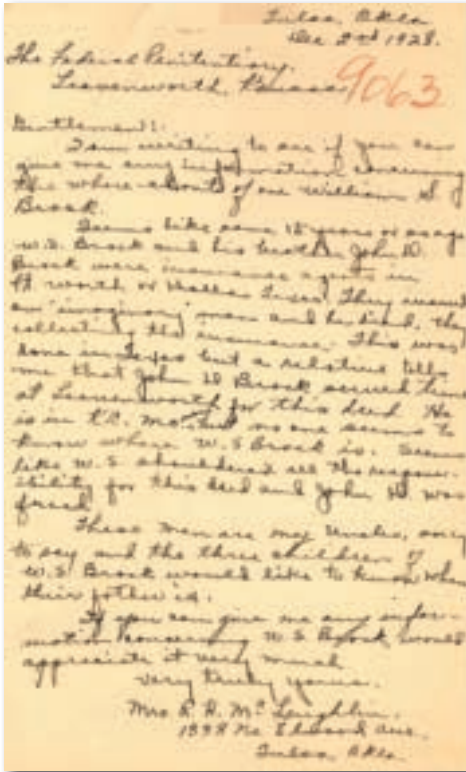 Tulsa, Okla
Dec 2nd 1928.
The Federal Penitentiary,
Leavenworth, Kansas
9063
Gentlemen:
I am writing to see if you can
give me any information concerning
the where abouts of one William S
Brock.
Seems like some 15 years or so ago
W.S. Brock and his brother John D.
Brock were insurance agents in
Ft worth or Dallas Texas. They insured
an "imaginary" man and he died, they
collecting the insurance. This was
done in Texas but a relative tells
me that John D Brock served time
at Leavenworth for this deed. He
is in K.C. Mo. but no one seems to
know where W.S Brock is. Seems
like W.S shouldered all the respon-
sibility for this deed and John D. was
freed.
These men are my Uncles, sorry
to say and the three children of
W.S. Brock would like to know where
their father is.
If you can give me any infor-
mation concerning W S Brock, would
appreciate it very much
Very truly yours.
Mrs R. H. McLaughlin.
No. Elwood Ave.
Tulsa, Okla.